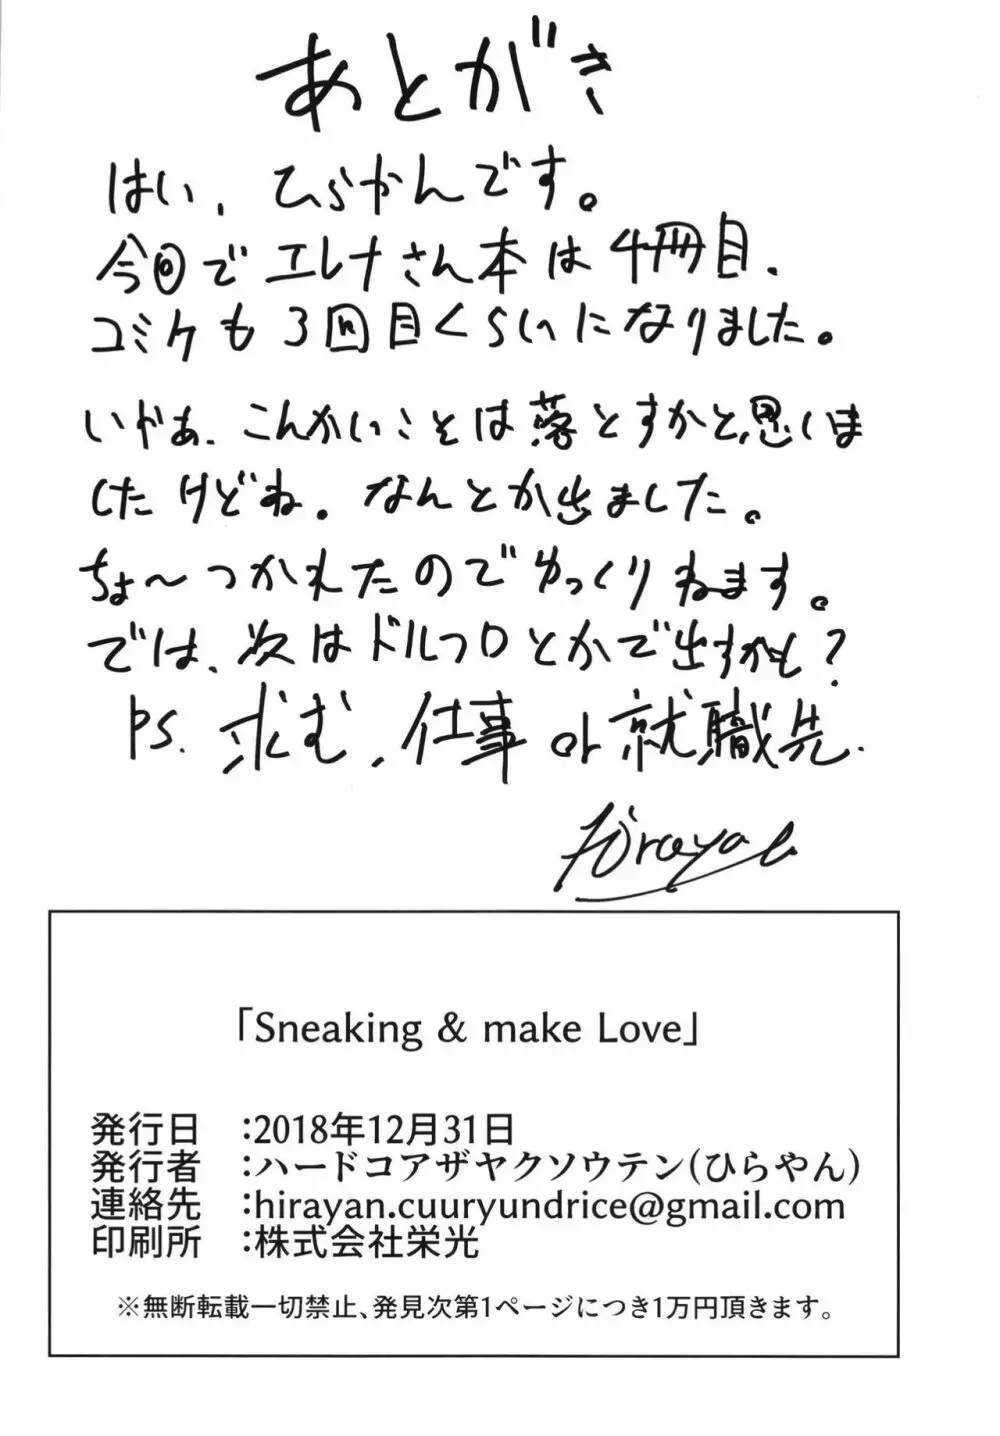 あとがき
はい、ひらやんです。
今回でエレナさん本は4冊目、
コミケも3回目くらいになりました。
いやぁ、こんかいことは落とすかと思いま
したけどね。なんとか出ました。
ちょ〜つかれたのでゆっくりねます。
では、次はドルフロとかで出すかも?
PS. 求む、仕事 or 就職先.
Hirayan
「Sneaking & make Love」
発行日 :2018年12月31日
発行者 :ハードコアザヤクソウテン(ひらやん)
連絡先 :hirayan.cuuryundrice@gmail.com
印刷所 :株式会社栄光
※無断転載一切禁止、発見次第1ページにつき1万円頂きます。